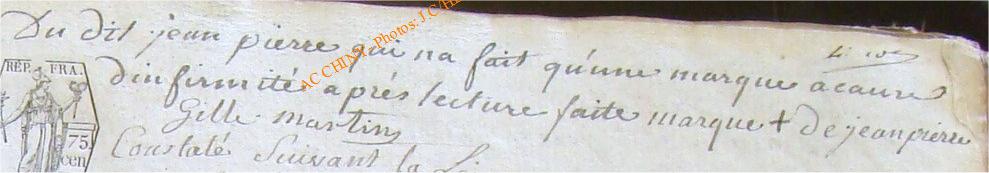 Du dit jean pierre qui na fait qu'une marque acause
d'infirmité aprés lecture faite marque + de jean pierre
Gille martin
Constaté Suivant la
RÉP. FRA.
75
cen
ACCHINT, Photos: J.C/H